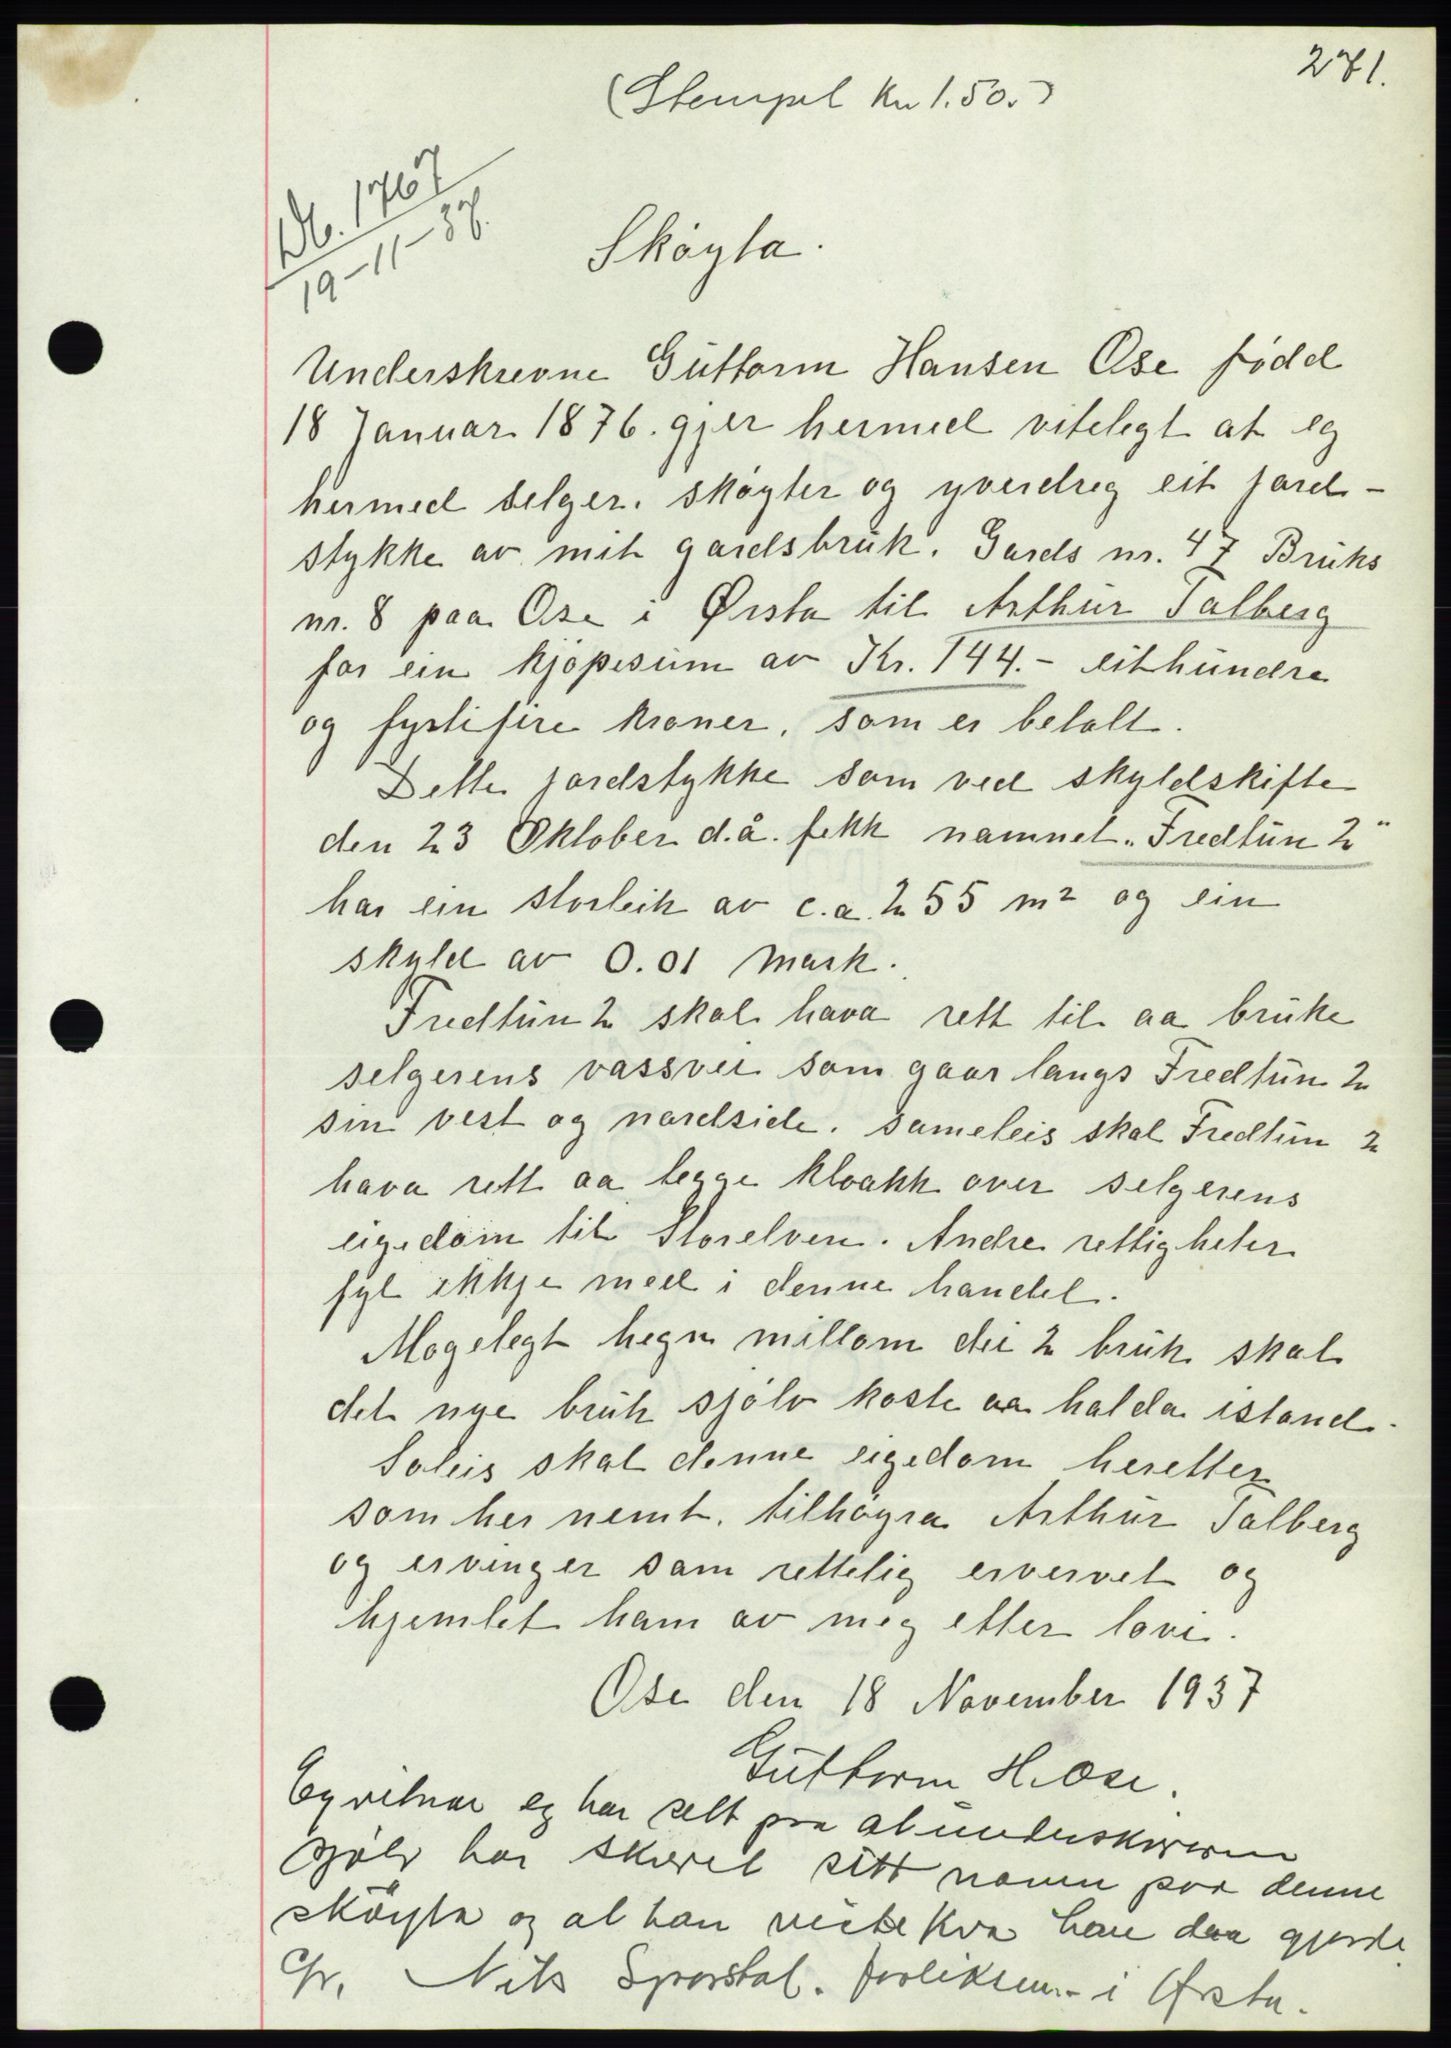 271.
(Stempel kr 1.50.)
Db. 1767
19-11-37.
Skøyta.
Underskrevne Guttorm Hansen Ose født
18 Januar 1876. gjer hermed vitelegt at eg
hermed selger, skøyter og yverdreg eit jord-
stykke av mit gardsbruk. Gards nr. 47 Bruks
nr. 8 paa Ose i Ørsta til Arthur Talberg
for ein kjøpesum av Kr. 144.- eithundre
og fyrtifire kroner, som er betalt.
Dette jordstykke som ved skyldskifte
den 23 Oktober d.å. fekk namnet „Fredtun 2"
har ein storleik av c.a. 255 m² og ein
skyld av 0.01 mark.
Fredtun 2 skal hava rett til aa bruke
selgerens vassvei som gaar langs Fredtun 2
sin vest og nordside. Sameleis skal Fredtun 2
hava rett aa legge kloakk over selgerens
eigedom til Storelven. Andre rettigheter
fyl ikkje med i denne handel.
Mogelegt hegn millom dei 2 bruk skal
det nye bruk sjølv koste aa halda istand.
Soleis skal denne eigedom heretter
som her nemt, tilhøyra Arthur Talberg
og ervinger som rettelig ervervet og
hjemlet ham av meg etter lovi.
Ose den 18 November 1937
Guttorm H. Ose.
Eg vitnar eg har sett paa at underskriveren
sjølv har skrevet sitt namn paa denne
skøyta og at han viste kva han daa gjorde.
Nils Sporstøl. forliksm. i Ørsta.